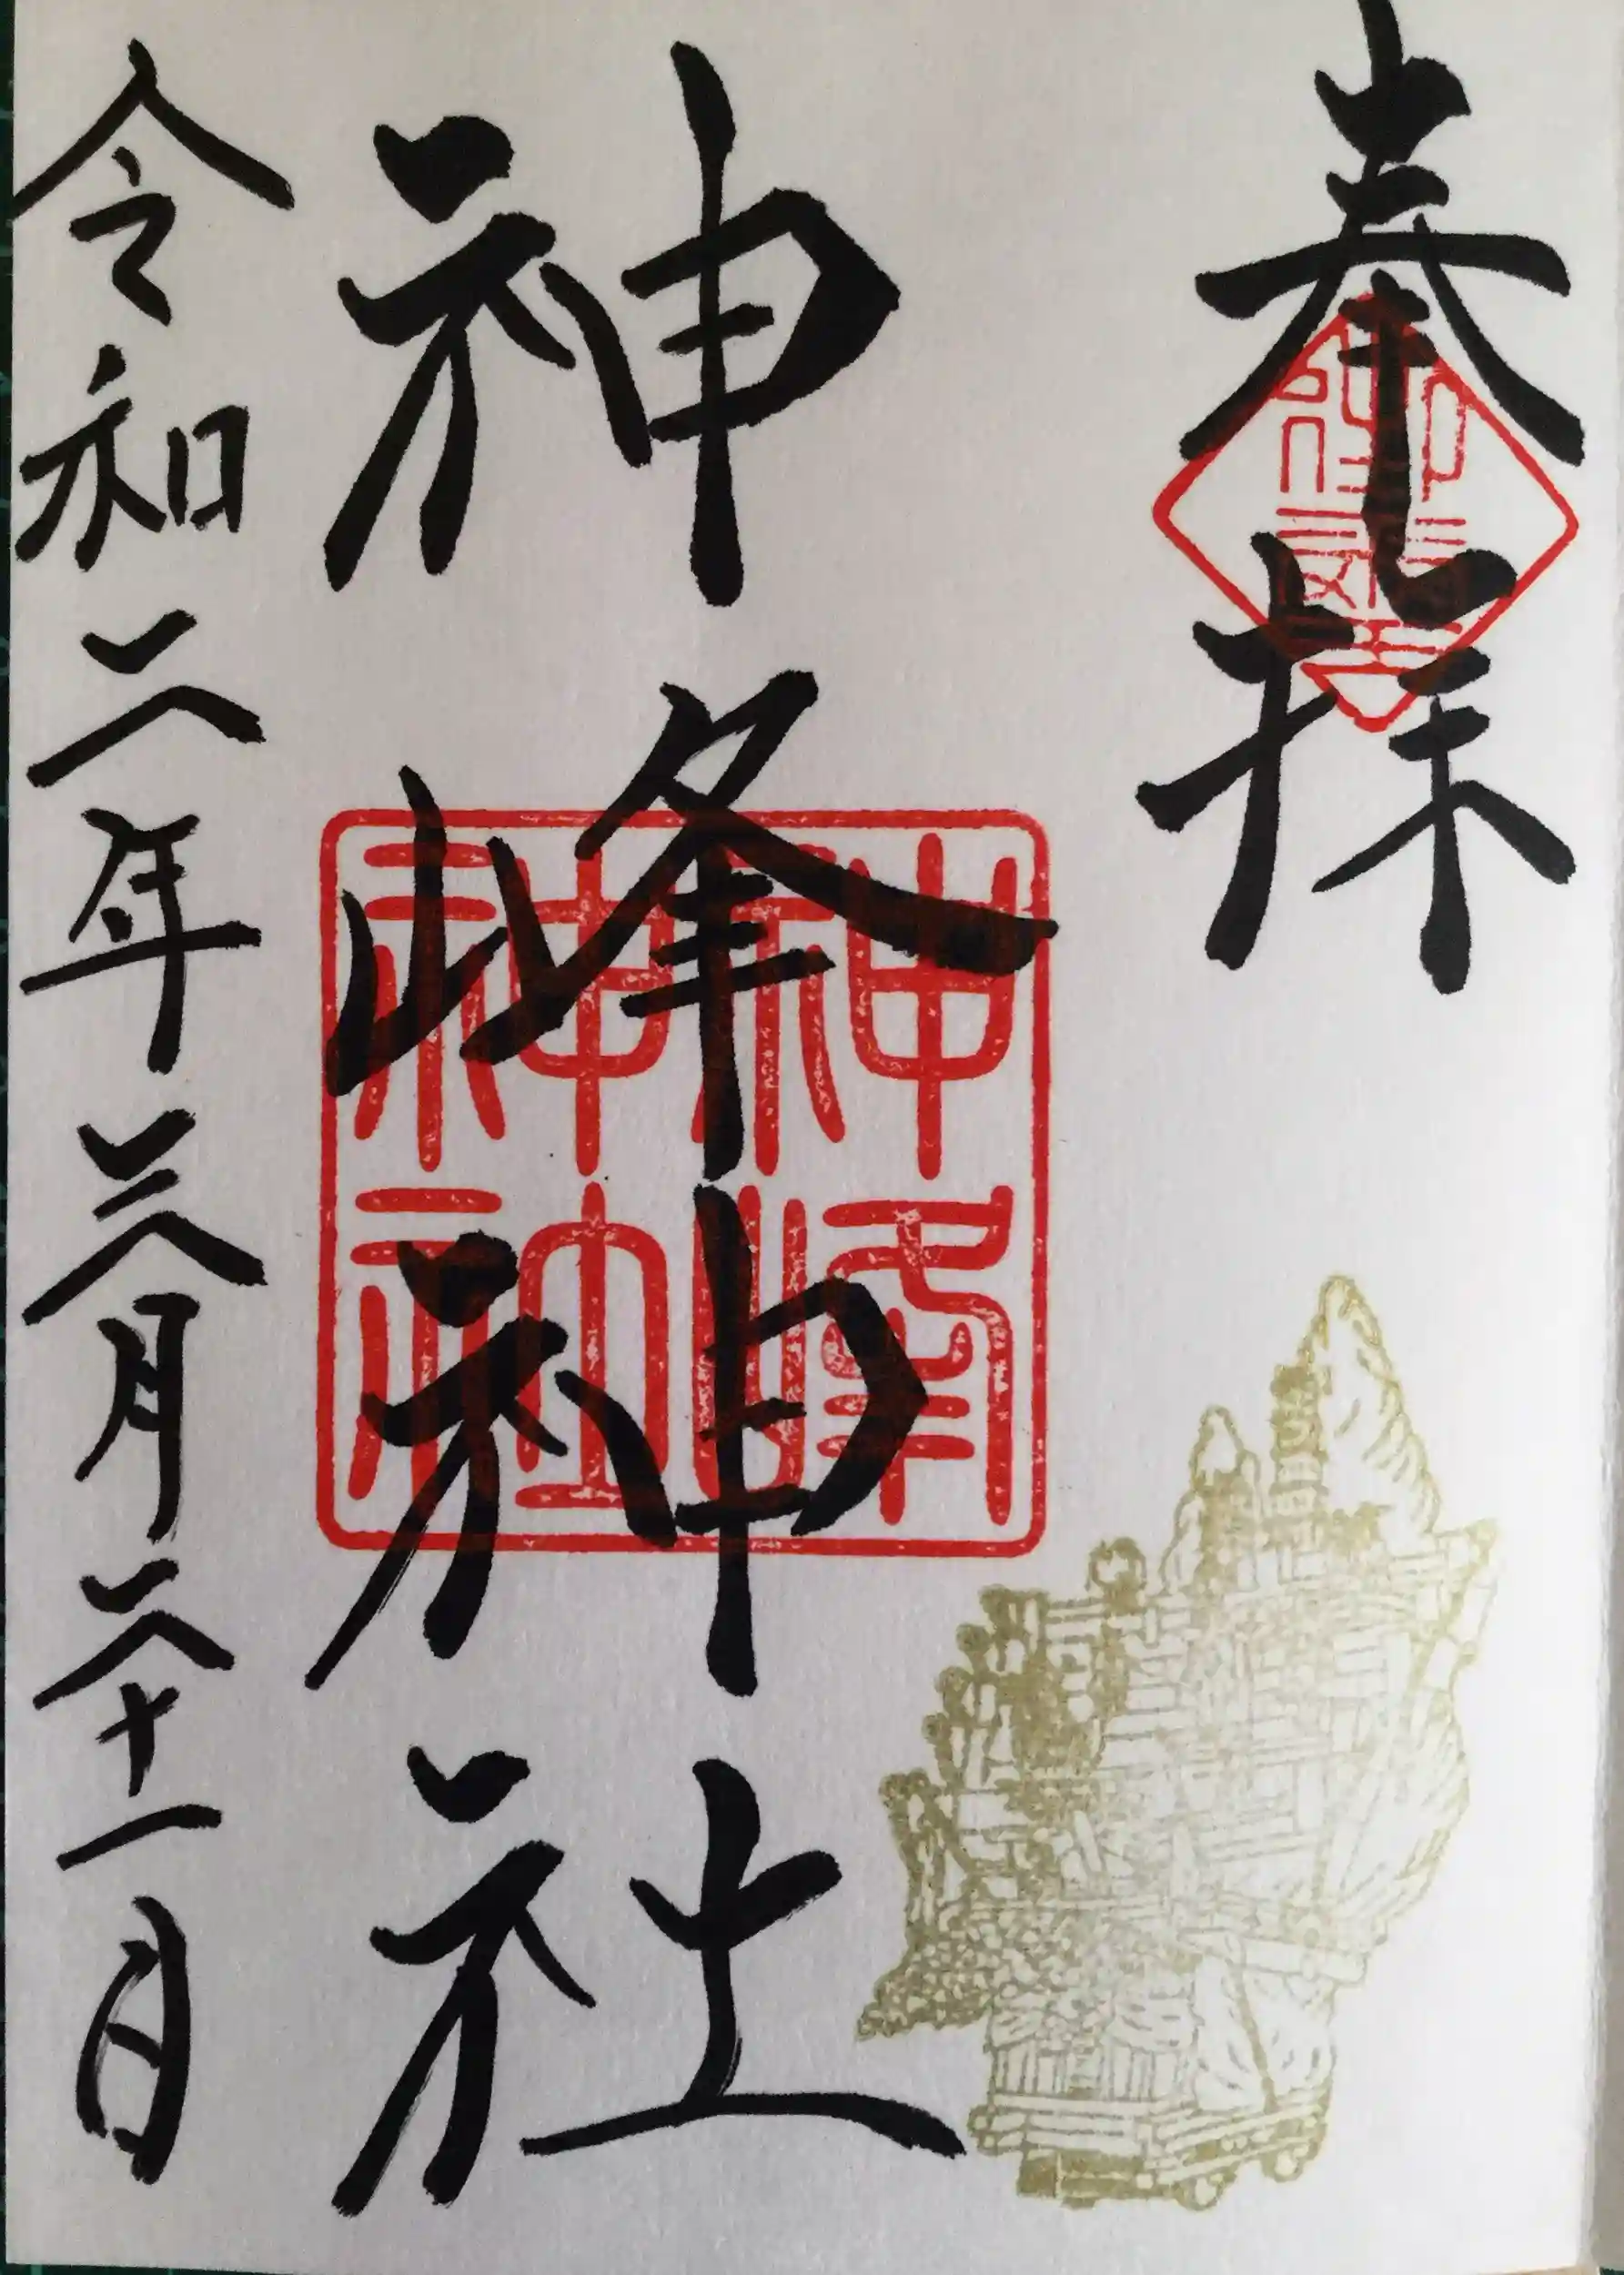 奉拝
神峰神社
神峰
神社
令和二年三月二十一日